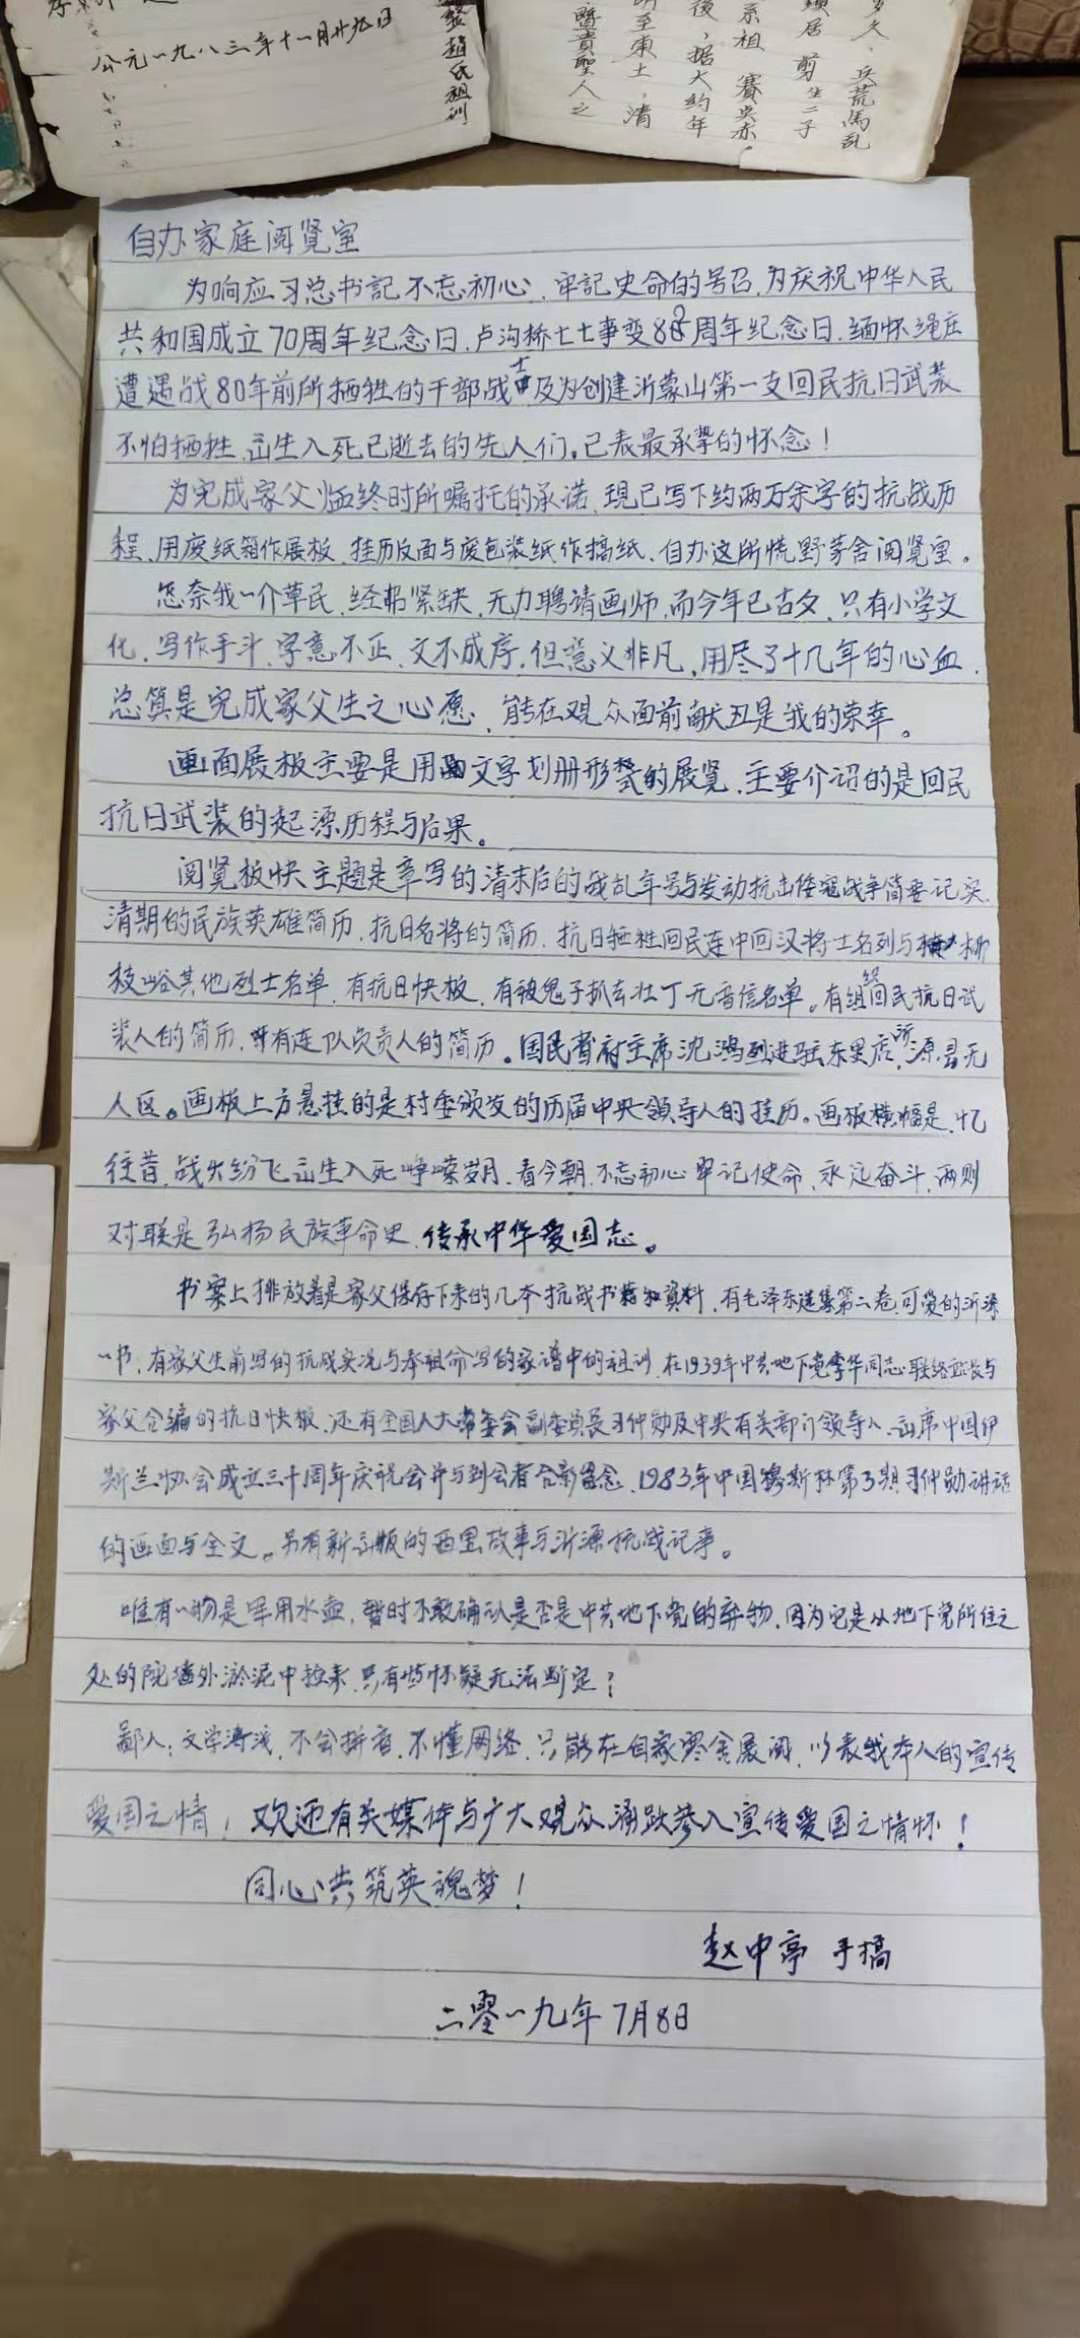 公元一九八三年十一月廿九日
赵氏祖训
兵荒馬乱
剪生二子
系祖 賽典赤
後，据大约年
明至東土，清
聖人之
自办家庭阅览室
为响应习总书記不忘初心、牢記史命的号召,为庆祝中华人民
共和国成立70周年纪念日,卢沟桥七七事变82周年纪念日.缅怀绳庄
遭遇战80年前所牺牲的干部战士及为创建沂蒙山第一支回民抗日武装
不怕牺牲,出生入死已逝去的先人们。已表最承挚的怀念!
为完成家父临终时所嘱托的承诺,現已写下约两万余字的抗战历
程,用废纸箱作展板,挂历反面与废包装纸作搞纸,自办这所慌野茅舍阅览室。
怎奈我一介草民,经费紧缺,无力聘请画师,而今年已古夕,只有小学文
化,写作手斗,字意不正,文不成序,但意义非凡,用尽了十几年的心血,
总算是完成家父生之心愿,能在观众面前献丑是我的荣幸。
画面展板主要是用文字划册形式的展览,主要介诏的是回民
抗日武装的起源历程与后果。
阅览板快主题是章写的清末后的战乱年号与发动抗击倭寇战争简要记实,
清期的民族英雄简历,抗日名将的简历,抗日牺牲回民连中回汉将士名列与柳
枝峪其他烈士名单,有抗日快板,有被鬼子抓去壮丁无音信名单。有组织回民抗日武
装人的简历,有连队负责人的简历。国民省府主席沈鸿烈进驻东里店,沂源县无
人区。画板上方悬挂的是村委颁发的历届中央领导人的挂历。画板横幅是,忆
往昔,战火纷飞出生入死峥嵘岁月,看今朝,不忘初心牢记使命,永远奋斗,两则
对联是弘扬民族革命史,传承中华爱国志。
书案上排放着是家父保存下来的几本抗战书籍和資料,有毛泽东选集第二卷,可爱的沂源
一书,有家父生前写的抗战实况与奉祖命写的家谱中的祖训,在1939年中共地下党李华同志联络站长与
家父合编的抗日快板,还有全国人大常委会副委员長习仲勋及中央有关部门领导人,出席中国伊
斯兰协会成立三十周年庆祝会并与到会者合影留念,1983年中国穆斯林第3期习仲勋讲话
的画面与全文。另有新出版的西里故事与沂源抗战记事。
唯有一物是军用水壶,暂时不敢确认是否是中共地下党的弃物,因为它是从地下党所住之
处的院墙外淤泥中捡来,只有些怀疑无法断定;
鄙人:文学溥浅,不会拼音,不懂网络,只能在自家寒舍展阅,以表我本人的宣传
爱国之情,欢迎有关媒体与广大观众涌跃参入宣传爱国之情怀!
同心共筑英魂梦!
赵中亭 手搞
二零一九年7月8日